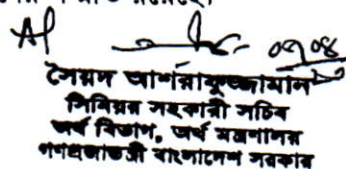 সৈয়দ আশরাফুজ্জামান
সিনিয়র সহকারী সচিব
অর্থ বিভাগ, অর্থ মন্ত্রণালয়
গণপ্রজাতন্ত্রী বাংলাদেশ সরকার